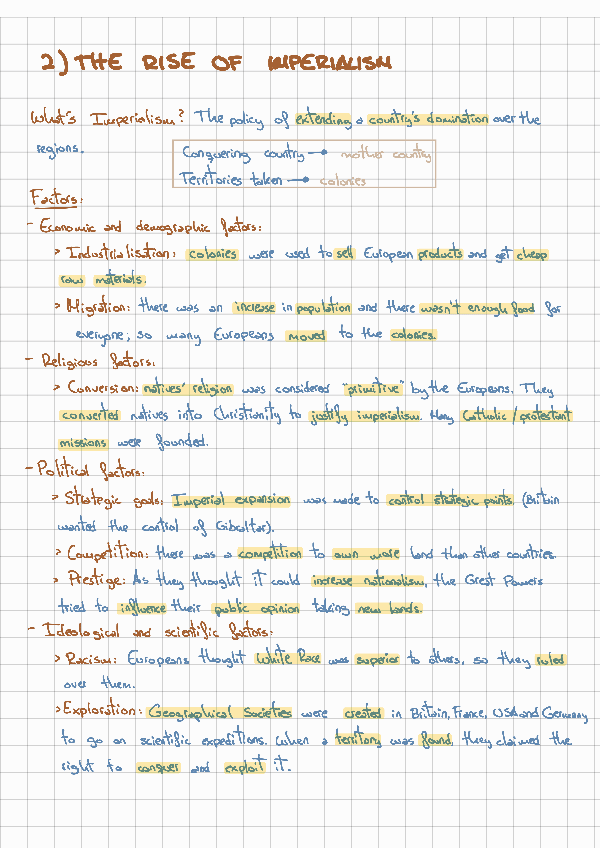 2) THE RISE OF IMPERIALISM
What's Imperialism? The policy of extending a country's domination over the
regions.
Conquering country → mother country
Territories taken → colonies
Factors:
- Economic and demographic factors:
> Industrialisation: colonies were used to sell European products and get cheap
raw materials.
> Migration: there was an increase in population and there wasn't enough food for
everyone; so many Europeans moved to the colonies.
- Religious factors:
> Conversion: natives' religion was considered "primitive" by the Europeans. They
converted natives into Christianity to justify imperialism. Many Catholic/protestant
missions were founded.
- Political factors:
> Strategic goals: Imperial expansion was made to control strategic points (Britain
wanted the control of Gibraltar).
> Competition: there was a competition to own more land than other countries.
> Prestige: As they thought it could increase nationalism, the Great Powers
tried to influence their public opinion taking new lands.
- Ideological and scientific factors:
> Racism: Europeans thought White Race was superior to others, so they ruled
over them.
> Exploration: Geographical Societies were created in Britain, France, USA and Germany
to go on scientific expeditions. When a territory was found, they claimed the
right to conquer and exploit it.